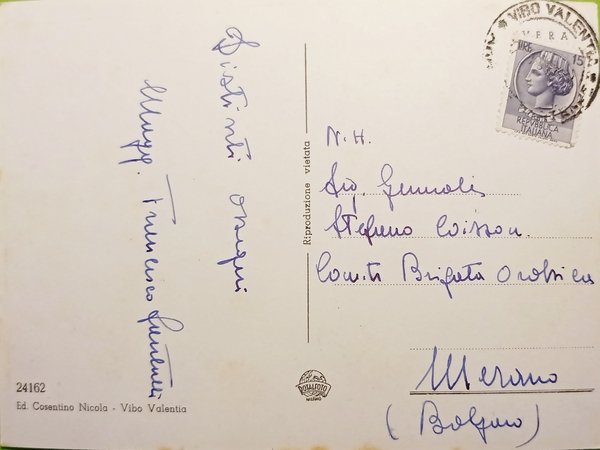 Distinti ossequi
Magg. Francesco
VIBO VALENTIA
LIRE 15
REPUBBLICA
ITALIANA
N. H.
Sig. Generale
Stefano Coisson.
Com.te Brigata Orobica
Merano
(Bolzano)
Riproduzione vietata
ROTALFOTO
MILANO
24162
Ed. Cosentino Nicola - Vibo Valentia